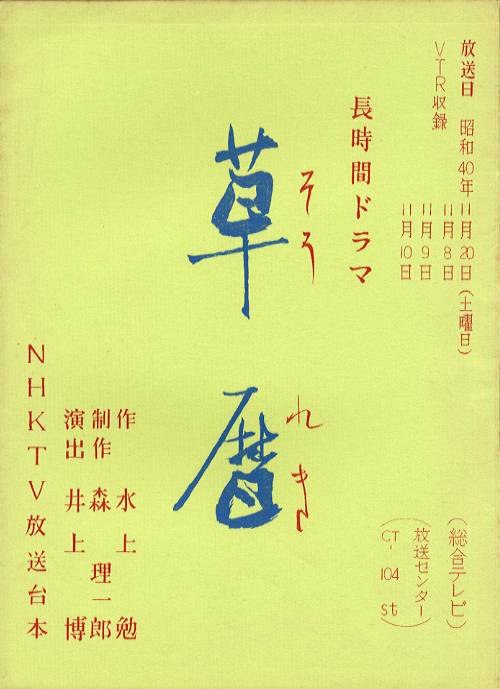 放送日 昭和40年11月20日(土曜日)
VTR収録 11月8日
11月9日
11月10日
(総合テレビ)
(放送センター)
(CT-104 st)
長時間ドラマ
そうれき
草暦
作 水上 勉
制作 森 理一郎
演出 井上 博
NHKTV放送台本